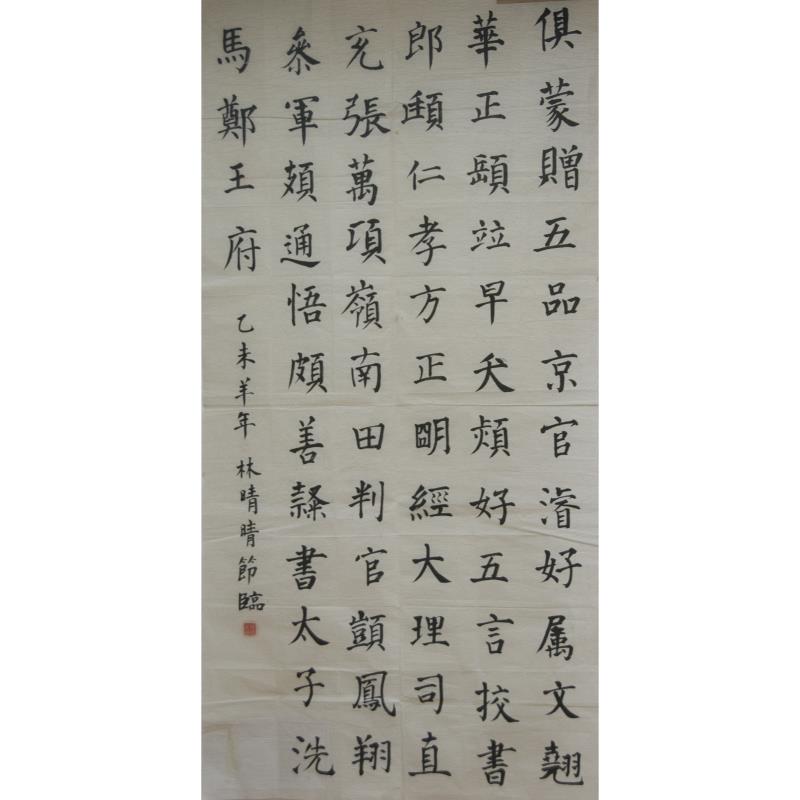 俱蒙贈五品京官濬好属文翹
華正顗竝早夭頻好五言挍書
郎頲仁孝方正明經大理司直
充張萬頃嶺南田判官顗鳳翔
叅軍頍通悟頗善隷書太子洗
馬鄭王府
乙未羊年 林晴晴節臨